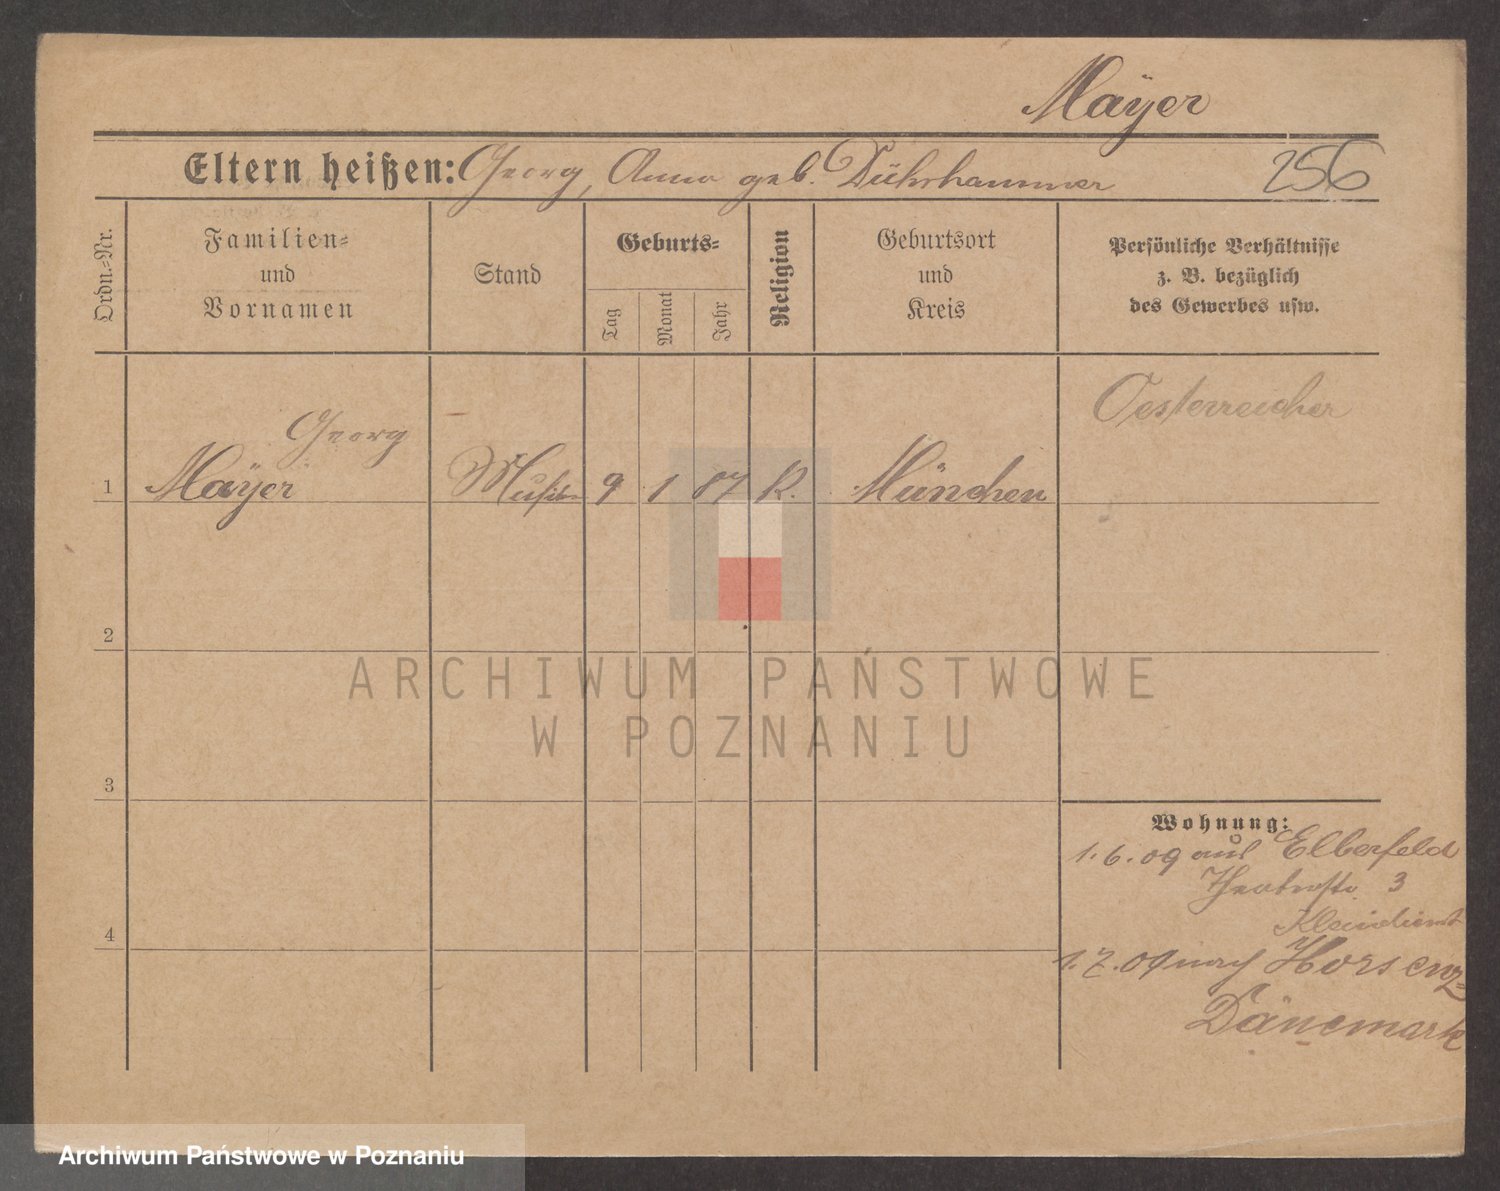 Mayer
Eltern heißen: Georg, Anna geb. Dührhammer 256
Ordn.-Nr.
Familien-
und
Vornamen
Stand
Geburts-
Tag
Monat
Jahr
Religion
Geburtsort
und
Kreis
Persönliche Verhältnisse
z. B. bezüglich
des Gewerbes usw.
Oesterreicher
Georg
1 Mayer Musik 9 1 87 K. München
2
ARCHIWUM PAŃSTWOWE
W POZNANIU
3
Wohnung:
1.6.09 aus Elberfeld
Theaterstr. 3
Kleindienst
4
1.7.09 nach Horsenz-
Dänemark
Archiwum Państwowe w Poznaniu